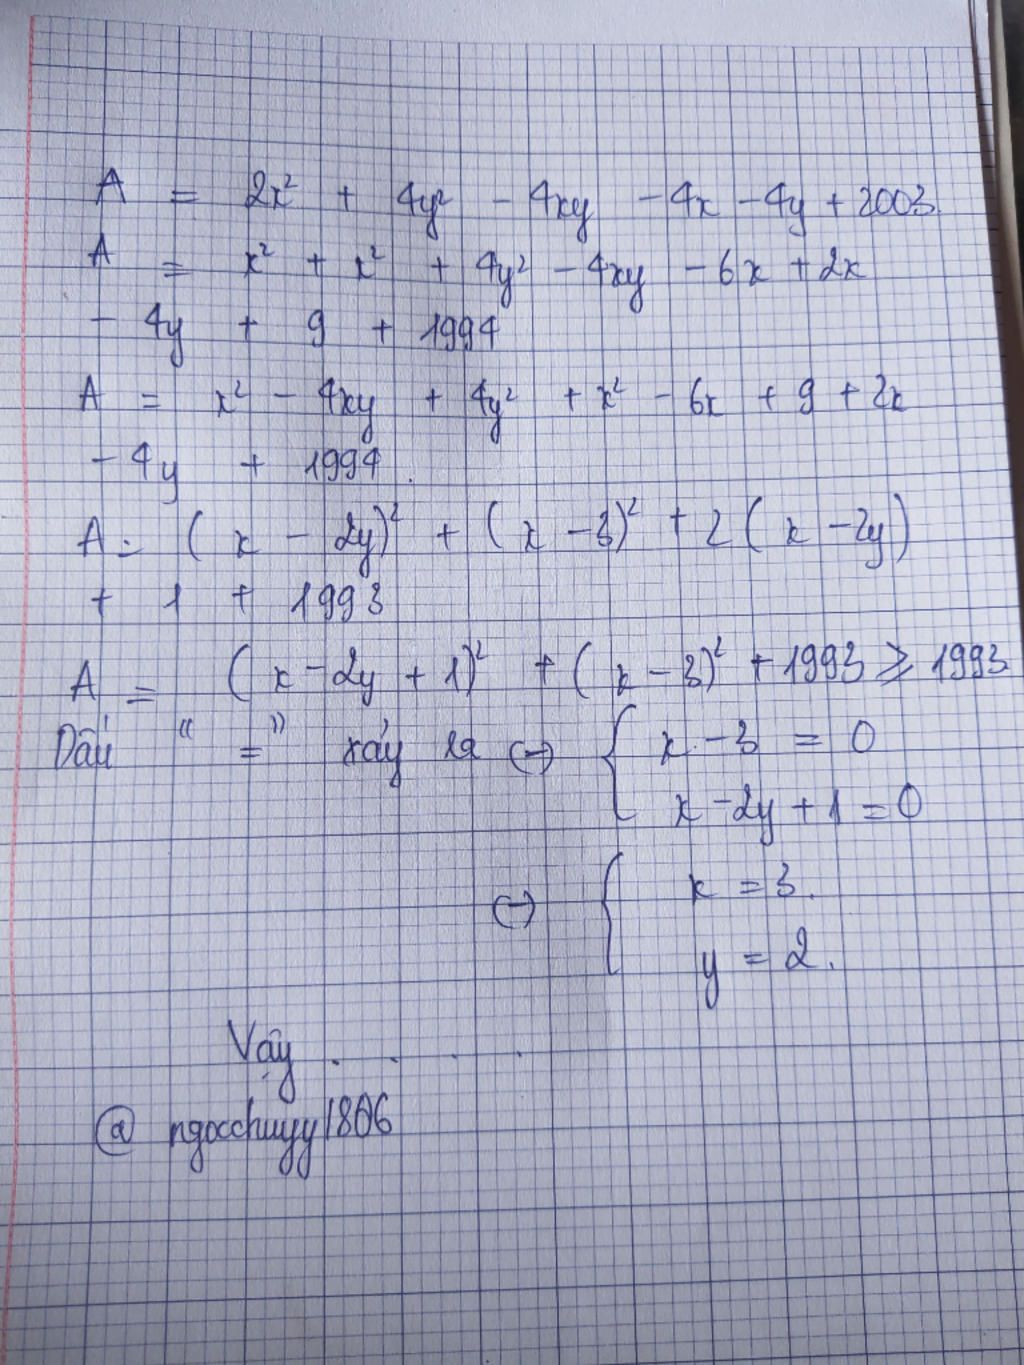 A = 2x² + 4y² - 4xy - 4x - 4y + 2003.
A = x² + x² + 4y² - 4xy - 6x + 2x
- 4y + 9 + 1994
A = x² - 4xy + 4y² + x² - 6x + 9 + 2x
- 4y + 1994.
A = (x - 2y)² + (x - 3)² + 2(x - 2y)
+ 1 + 1993
A = (x - 2y + 1)² + (x - 3)² + 1993 ⩾ 1993
Dấu "=" xảy ra (-) { x - 3 = 0
x - 2y + 1 = 0
(-) { x = 3.
y = 2.
Vậy . . . .
@ ngocchuyy1806